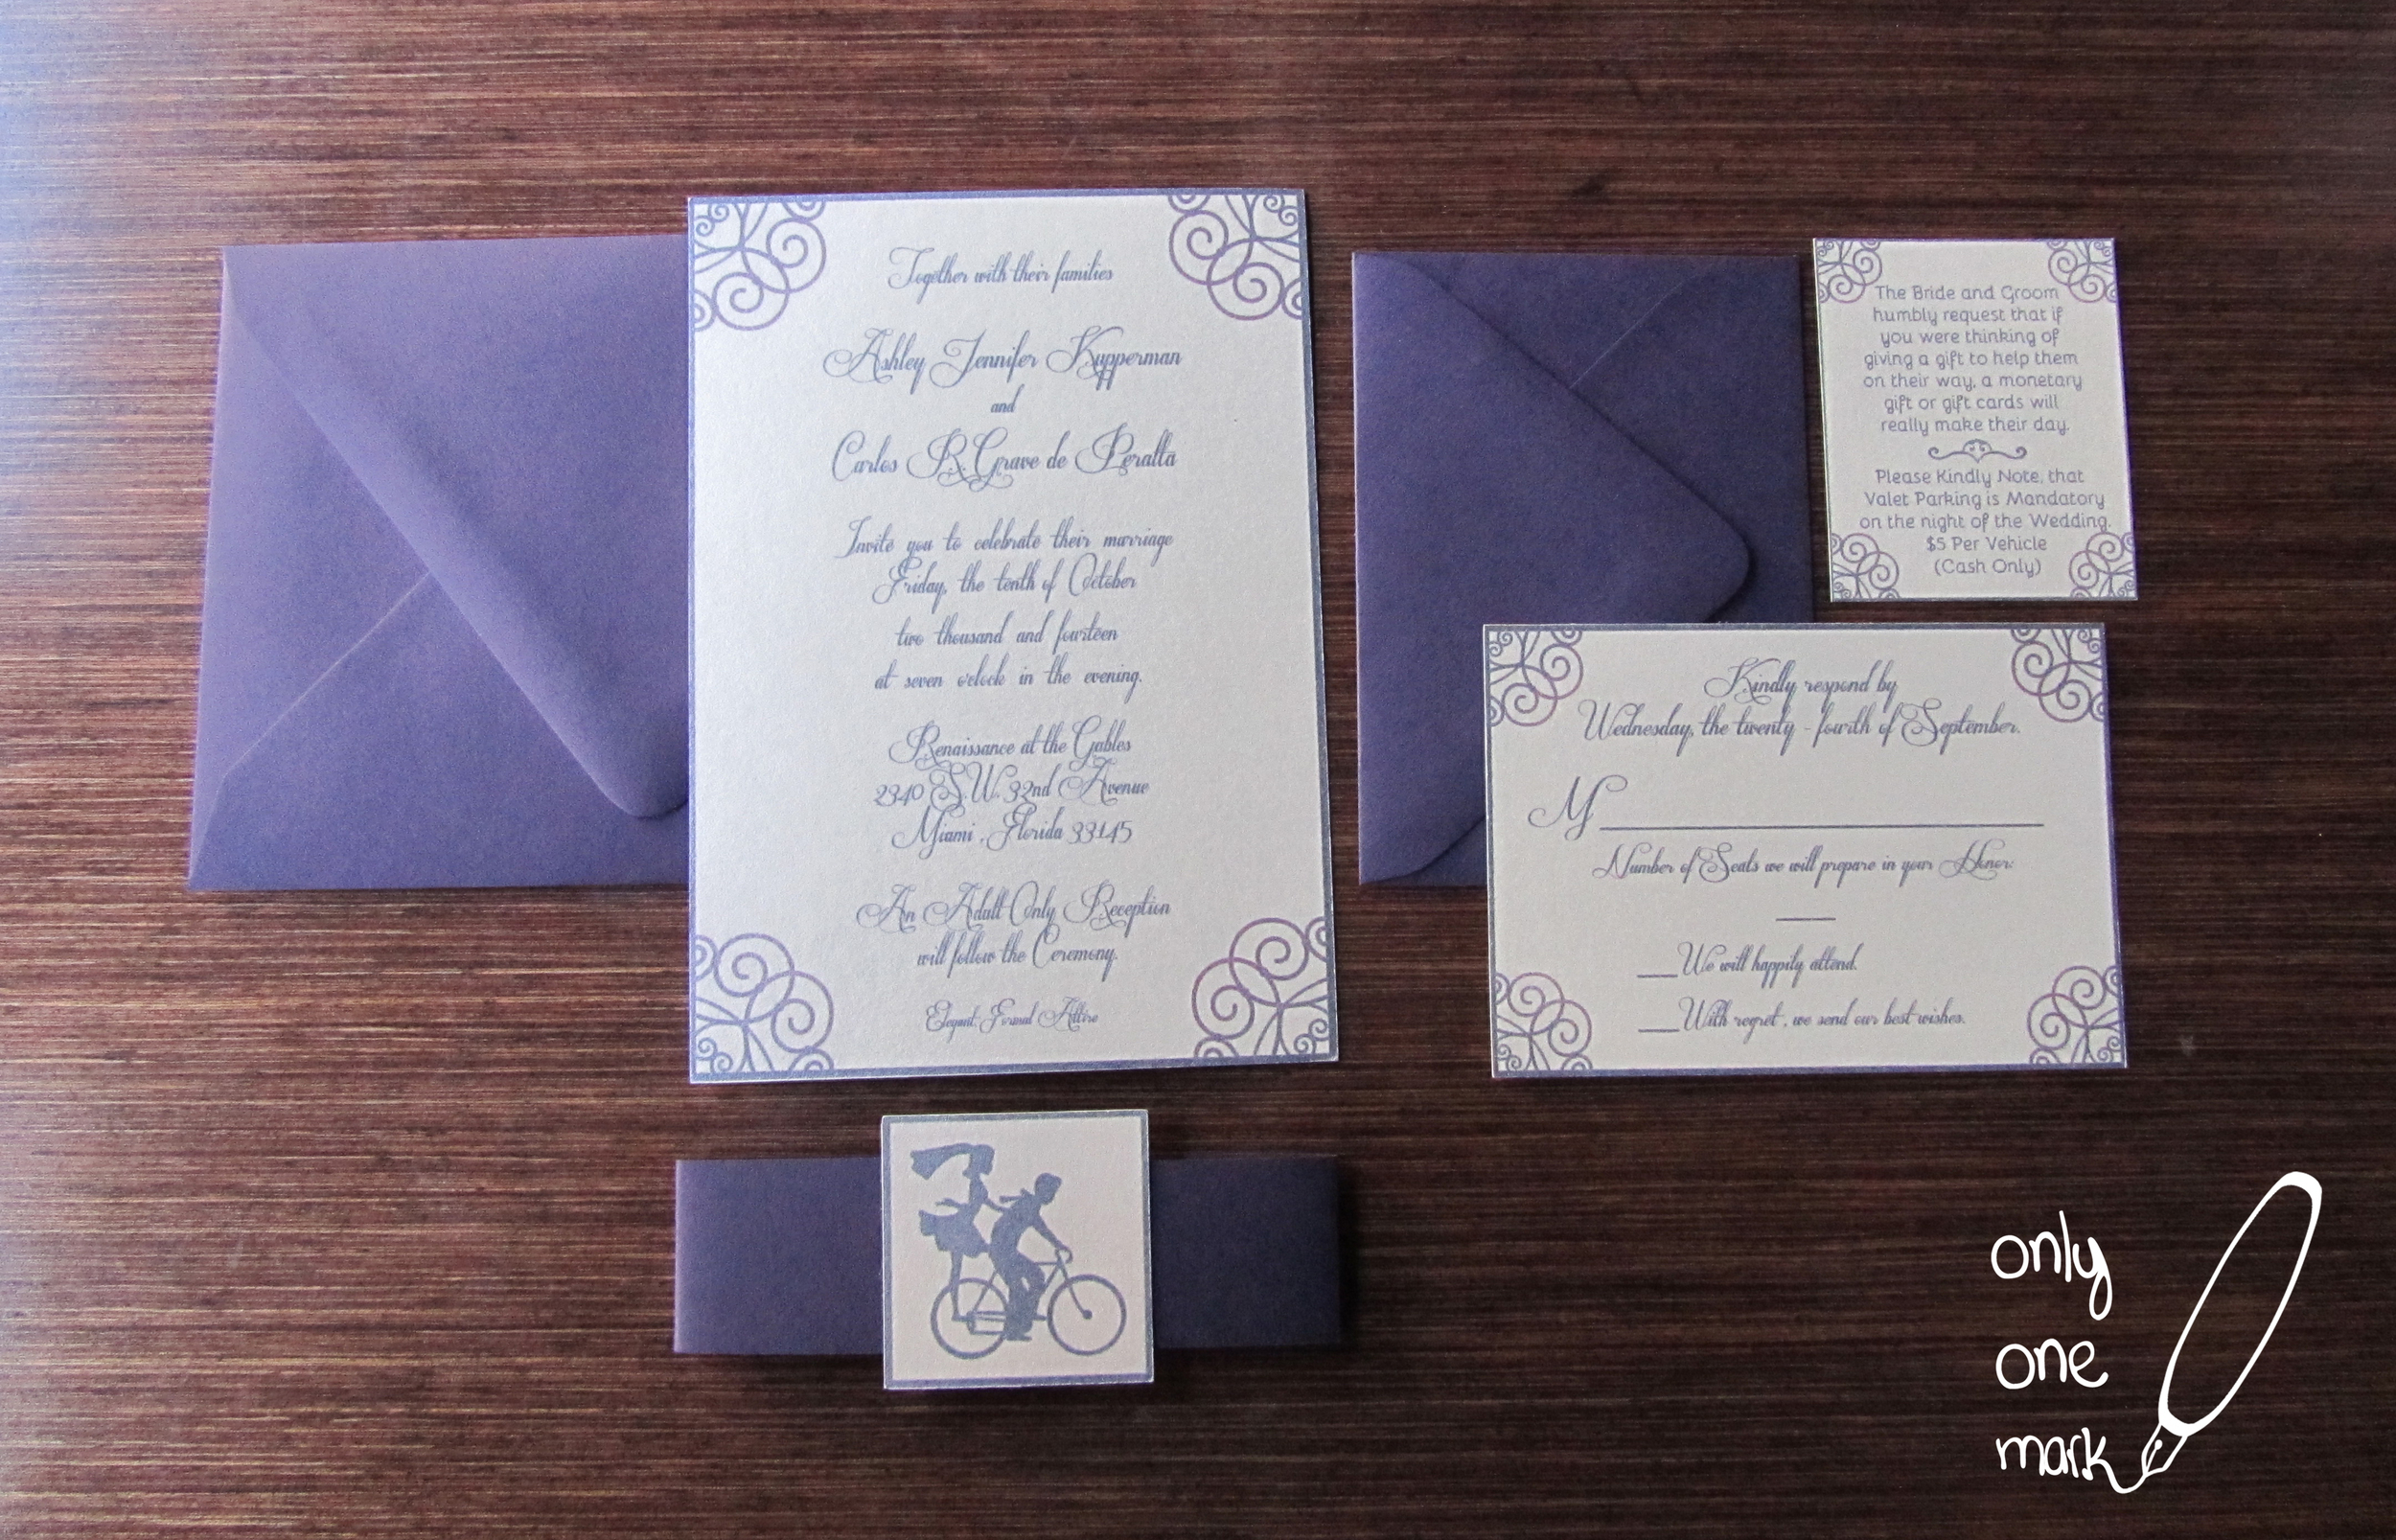 Together with their families
Ashley Jennifer Kupperman
and
Carlos R. Grave de Peralta
Invite you to celebrate their marriage
Friday, the tenth of October
two thousand and fourteen
at seven o'clock in the evening.
Renaissance at the Gables
2340 S.W. 32nd Avenue
Miami, Florida 33145
An Adult Only Reception
will follow the Ceremony.
Elegant Formal Attire
The Bride and Groom
humbly request that if
you were thinking of
giving a gift to help them
on their way, a monetary
gift or gift cards will
really make their day.
Please Kindly Note, that
Valet Parking is Mandatory
on the night of the Wedding.
$5 Per Vehicle
(Cash Only)
Kindly respond by
Wednesday, the twenty - fourth of September.
M
Number of Seats we will prepare in your Honor:
___We will happily attend.
___With regret, we send our best wishes.
only
one
mark